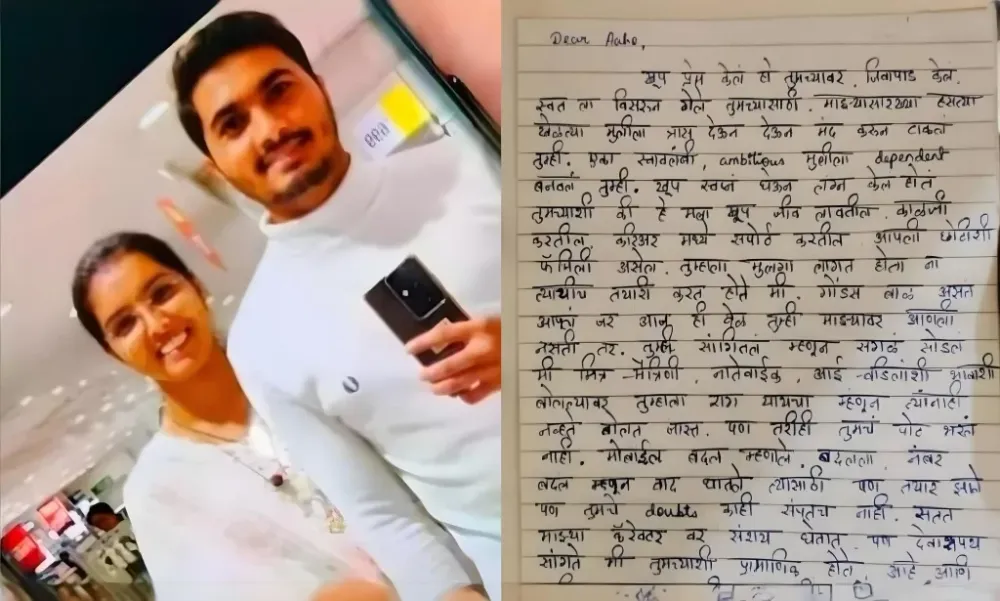 Dear Aaho,
खूप प्रेम केलं हो तुमच्यावर. जिवापाड केलं.
स्वत ला विसरून गेले तुमच्यासाठी. माझ्यासारख्या हसत्या
खेळत्या मुलीला त्रास देऊन देऊन मंद करून टाकलं
तुम्ही. एका स्वावलंबी, ambitious मुलीला dependent
बनवलं तुम्ही. खूप स्वप्नं घेऊन लग्न केलं होतं
तुमच्याशी की हे मला खूप जीव लावतील. काळजी
करतील. करिअर मध्ये सपोर्ट करतील आपली छोटीशी
फॅमिली असेल. तुम्हाला मुलगा लागत होता ना
त्याचीच तयारी करत होते मी. गोंडस बाळ असतं
आपलं जर आज ही वेळ तुम्ही माझ्यावर आणली
नसती तर. तुम्ही सांगितलं म्हणून सगळं सोडलं
मी मित्र-मैत्रिणी, नातेवाईक, आई-वडिलांशी भावाशी
बोलल्यावर तुम्हाला राग यायचा म्हणून त्यांनाही
नव्हते बोलत जास्त. पण तरीही तुमचं पोट भरलं
नाही. मोबाईल बदल म्हणाले, बदलला, नंबर
बदल म्हणून वाद घातले त्यासाठी पण तयार झाले
पण तुमचे doubts काही संपतच नाही. सतत
माझ्या कॅरेक्टर वर संशय घेतात. पण देवाशपथ
सांगते मी तुमच्याशी प्रामाणिक होते आहे आणि